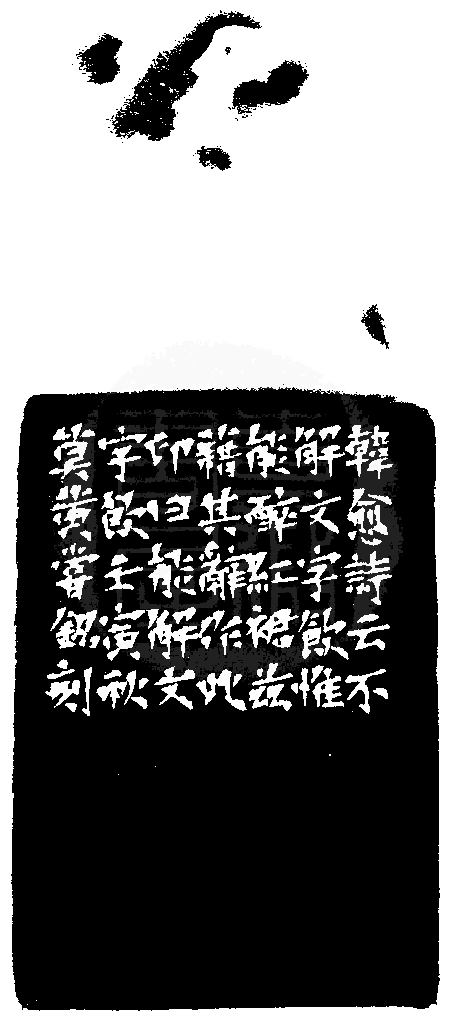 韓愈詩云不
解文字飲惟
能醉紅裙茲
藉其辭作此
印曰能解文
字飲壬寅秋
莫黃嘗銘刻